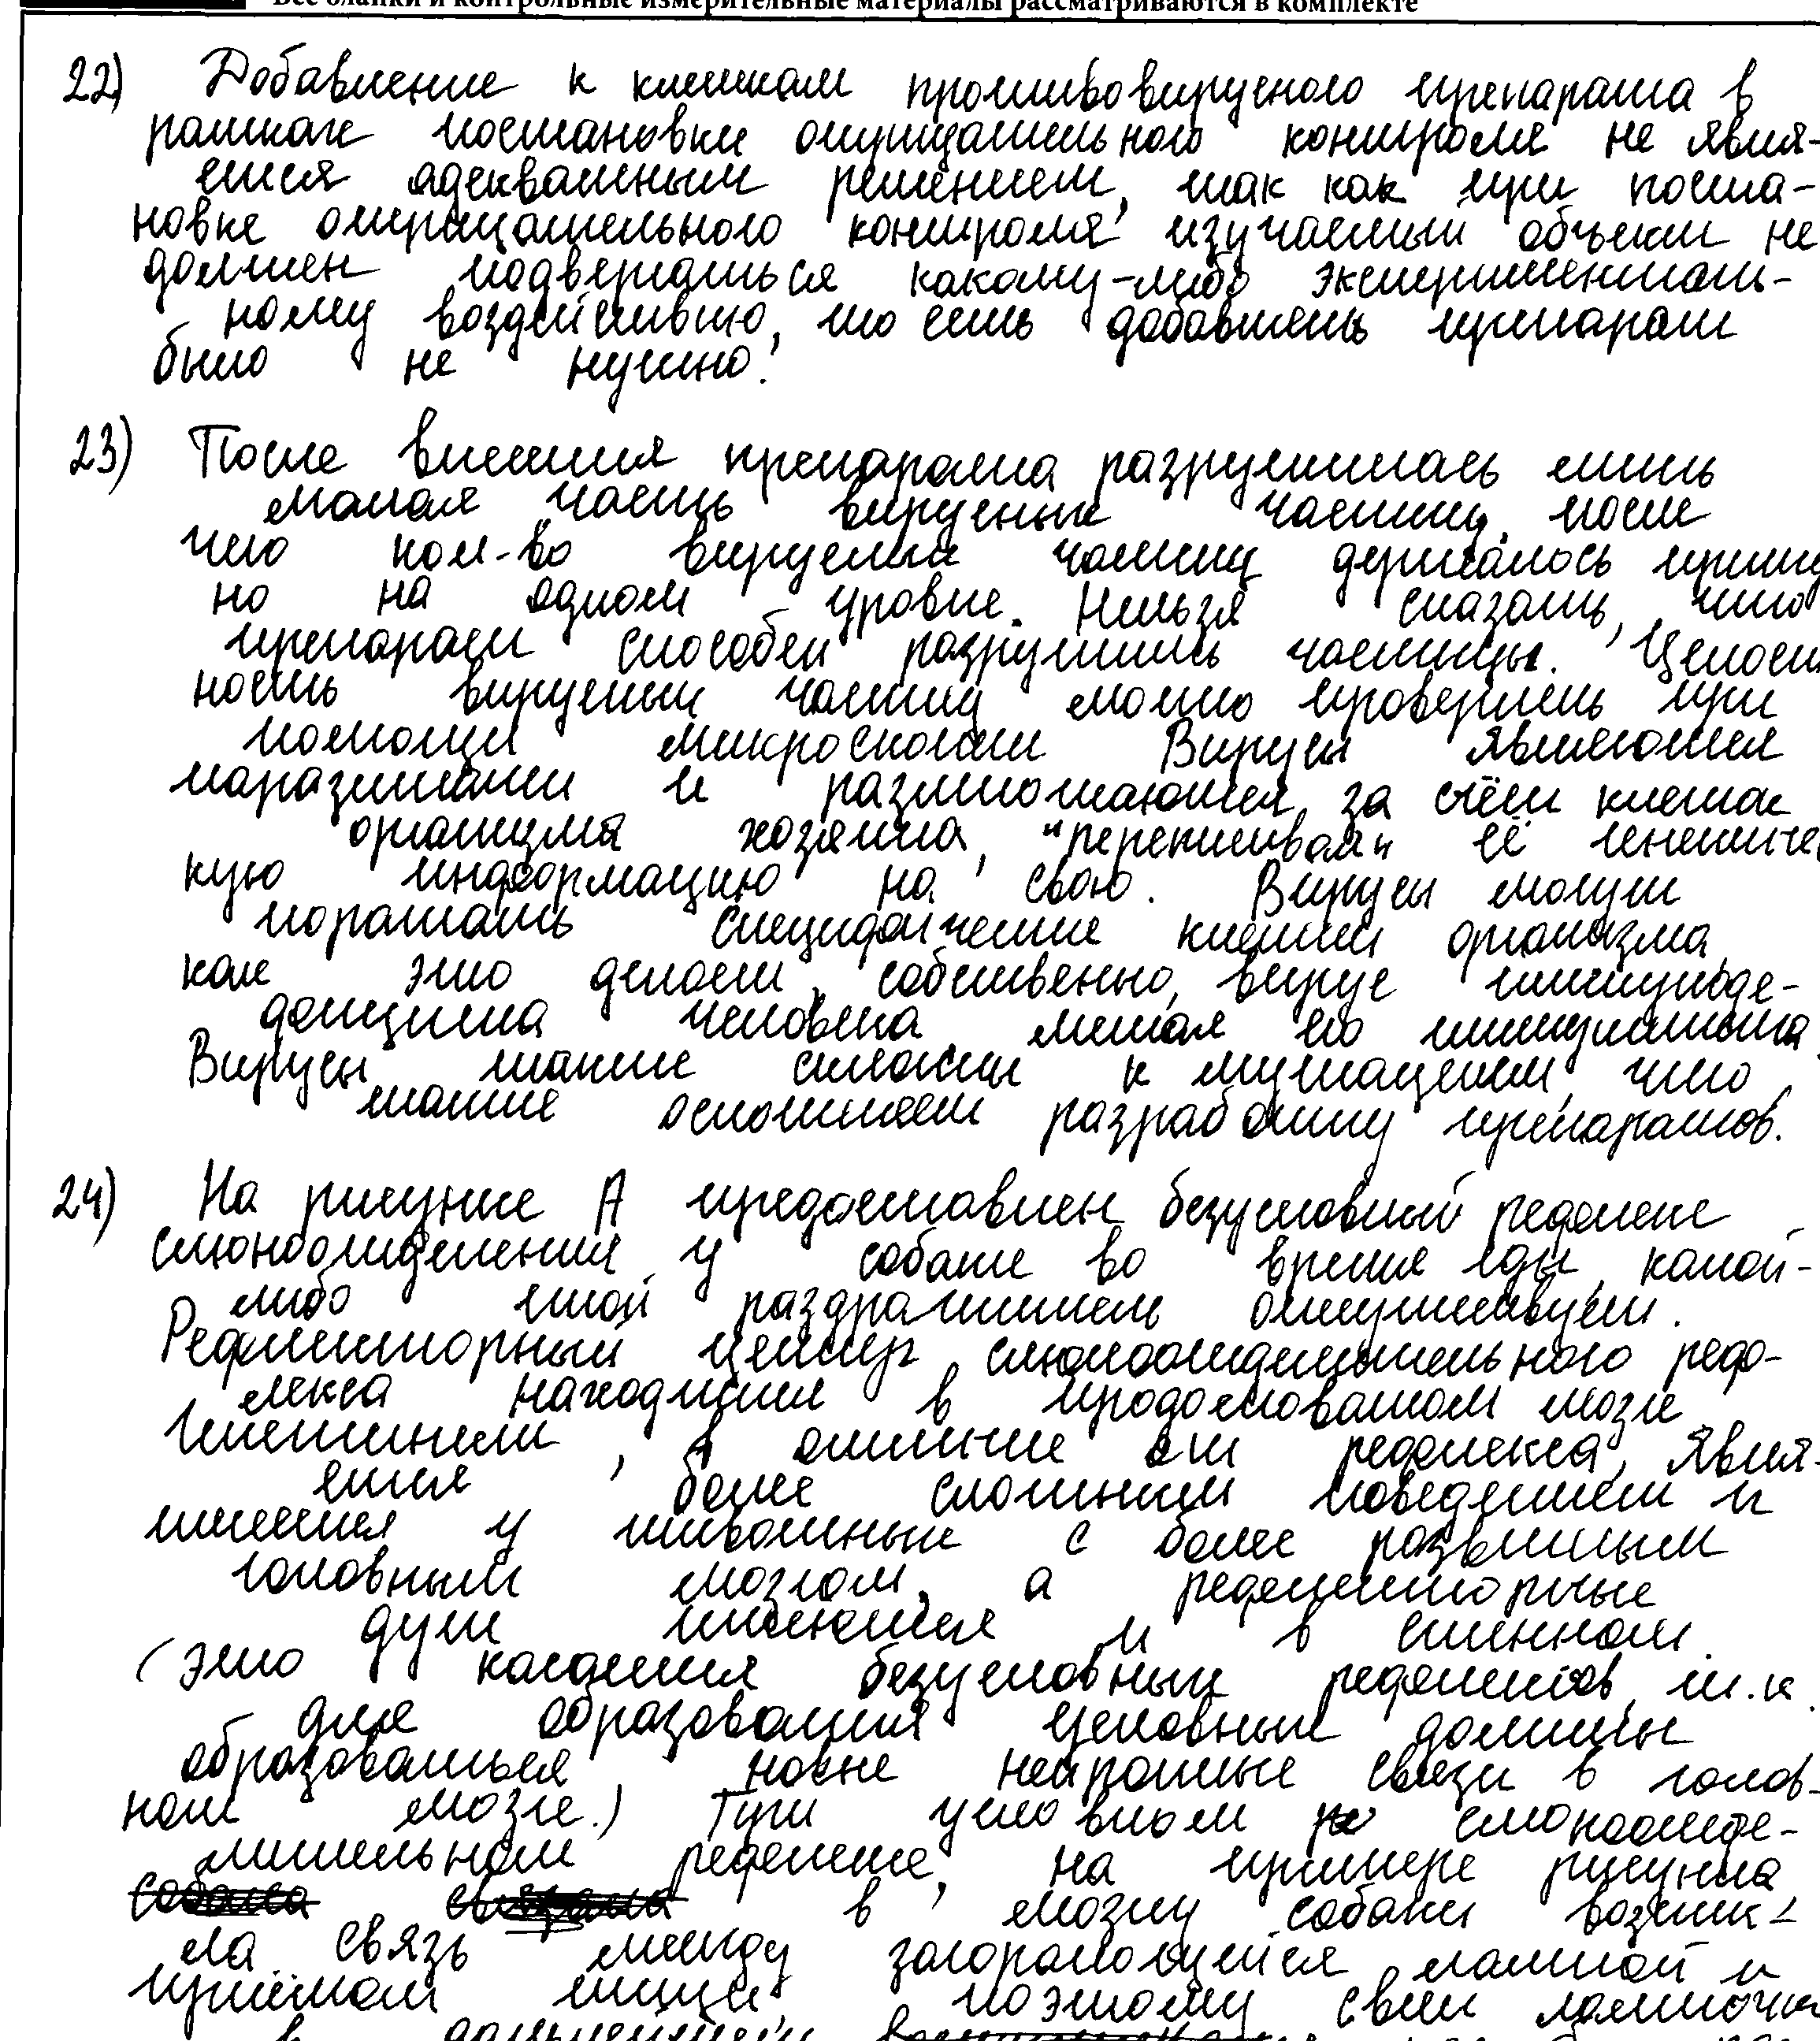 Все бланки и контрольные измерительные материалы рассматриваются в комплекте
22) Добавление к клеткам противовирусного препарата в
рамках постановки отрицательного контроля не явля-
ется адекватным решением, так как при поста-
новке отрицательного контроля изучаемый объект не
должен подвергаться какому-либо эксперименталь-
ному воздействию, то есть добавлять препарат
было не нужно.
23) После внесения препарата разрушилась лишь
малая часть вирусных частиц, после
чего кол-во вирусных частиц держалось пример
но на одном уровне. Нельзя сказать, что
препарат способен разрушить частицы. Целост
ность вирусных частиц можно проверить при
помощи микроскопии Вирусы являются
паразитами и размножаются за счёт клеток
организма хозяина, "переписывая" её генетичес
кую информацию на свою. Вирусы могут
поражать специфические клетки организма,
как это делает, собственно, вирус иммуноде-
фицита человека, мешая его иммунитета.
Вирусы также склонны к мутациям, что
также осложняет разработку препаратов.
24) На рисунке А предоставлен безусловный рефлекс
слюноотделения у собаки во время еды, какой-
либо иной раздражитель отсутствует.
Рефлекторный центр слюноотделительного реф-
лекса находится в продолговатом мозге
Инстинкт, в отличие от рефлекса, явля-
ется более сложным поведением и
имеется у животных с более развитым
головным мозгом, а рефлекторные
дуги имеются и в спинном
(это касается безусловных рефлексов, т.к.
для образования условных должны
образоваться новые нейронные связи в голов-
ном мозге.) При условном слюноотде-
лительном рефлексе, на примере рисунка
в мозгу собаки возник-
ла связь между загорающейся лампой и
приёмом пищи поэтому свет лампочки
в дальнейшем